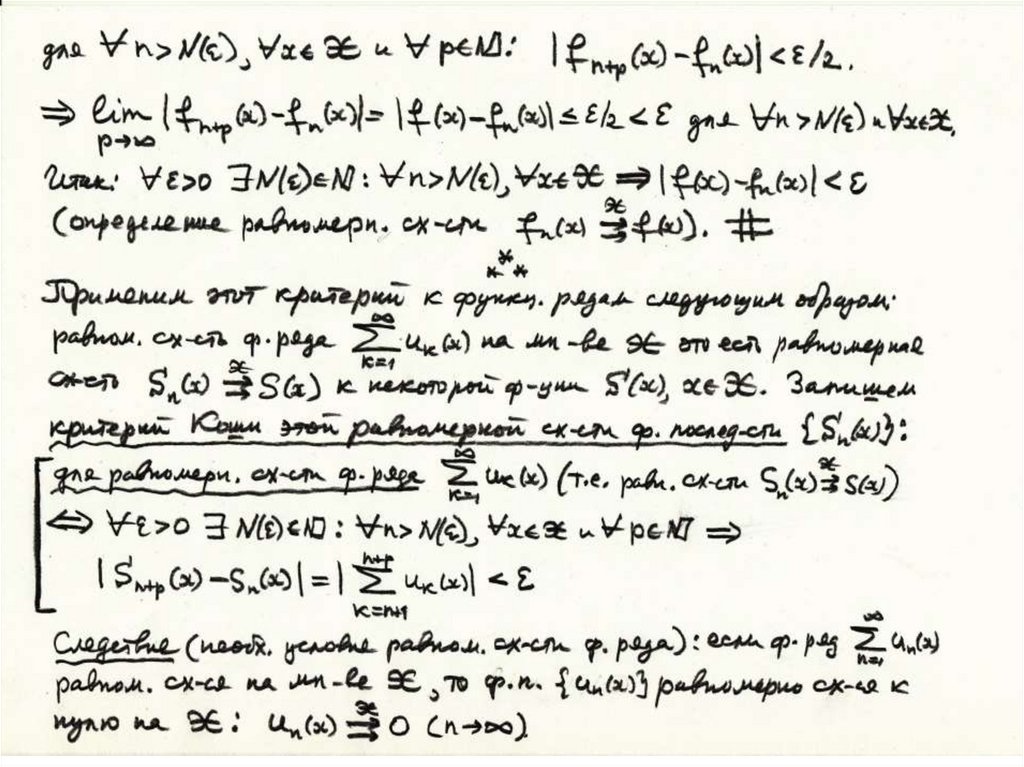 для ∀ n > N(ε), ∀x ∈ 𝒳 и ∀ p ∈ ℕ: |f_{n+p}(x) – f_n(x)| < ε/2.
⇒ lim_{p→∞} |f_{n+p}(x) – f_n(x)| = |f(x) – f_n(x)| ≤ ε/2 < ε для ∀n > N(ε) и ∀x ∈ 𝒳.
Итак: ∀ε>0 ∃N(ε)∈ℕ: ∀n > N(ε), ∀x ∈ 𝒳 ⇒ |f(x) – f_n(x)| < ε
(определение равномерн. сх-сти f_n(x) ⇉^𝒳 f(x)). #
* * *
Применим этот критерий к функц. рядам следующим образом:
равном. сх-сть ф. ряда ∑_{k=1}^{∞} u_k(x) на мн-ве 𝒳 это есть равномерная
сх-сть S_n(x) ⇉^𝒳 S(x) к некоторой ф-ции S(x), x ∈ 𝒳. Запишем
критерий Коши этой равномерной сх-сти ф. послед-сти {S_n(x)}:
для равномерн. сх-сти ф. ряда ∑_{k=1}^{∞} u_k(x) (т.е. равн. сх-сти S_n(x) ⇉^𝒳 S(x))
⇔ ∀ε>0 ∃N(ε)∈ℕ: ∀n > N(ε), ∀x ∈ 𝒳 и ∀ p ∈ ℕ ⇒
|S_{n+p}(x) – S_n(x)| = |∑_{k=n+1}^{n+p} u_k(x)| < ε
Следствие (необх. условие равном. сх-сти ф. ряда): если ф. ряд ∑_{n=1}^{∞} u_n(x)
равном. сх-ся на мн-ве 𝒳, то ф.п. {u_n(x)} равномерно сх-ся к
нулю на 𝒳: u_n(x) ⇉^𝒳 0 (n→∞).